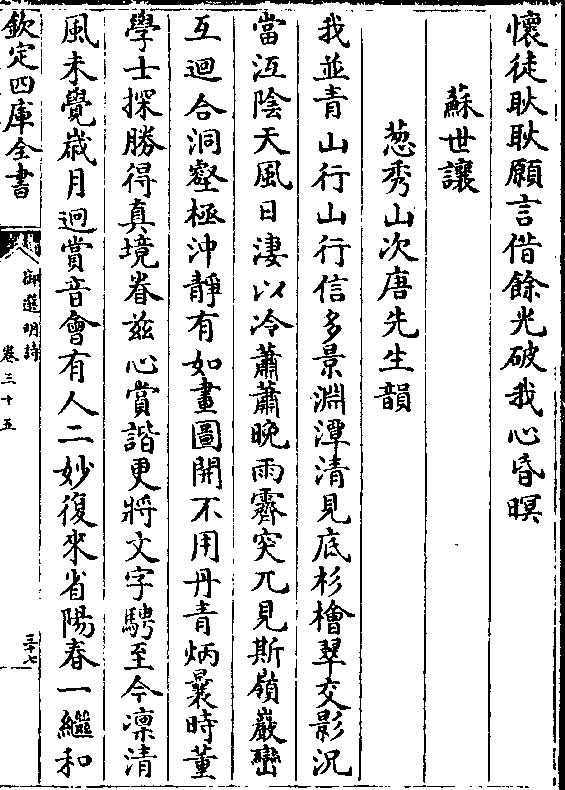 懷徒耿耿願言借餘光破我心昏暝
蘇世讓
葱秀山次唐先生韻
我並青山行山行信多景淵潭清見底杉檜翠交影況
當沍陰天風日淒以冷蕭蕭晚雨霽突兀見斯嶺巖巒
互迴合洞壑極沖靜有如畫圖開不用丹青炳曩時董
學士探勝得真境眷兹心賞諧更將文字騁至今凛清
風未覺歳月迥賞音會有人二妙復來省陽春一繼和
欽定四庫全書
御選明詩
卷三十五
三十七